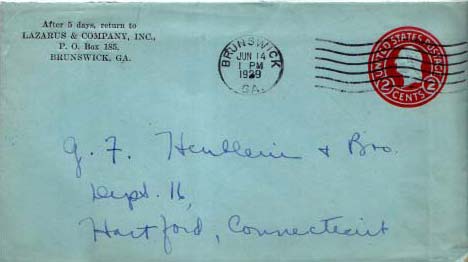 After 5 days, return to
LAZARUS & COMPANY, INC.,
P. O. Box 185,
BRUNSWICK, GA.
BRUNSWICK
JUN 14
1 PM
1929
GA.
UNITED STATES POSTAGE
2 CENTS 2
G. F. Heublein & Bro.
Dept. 16,
Hartford, Connecticut